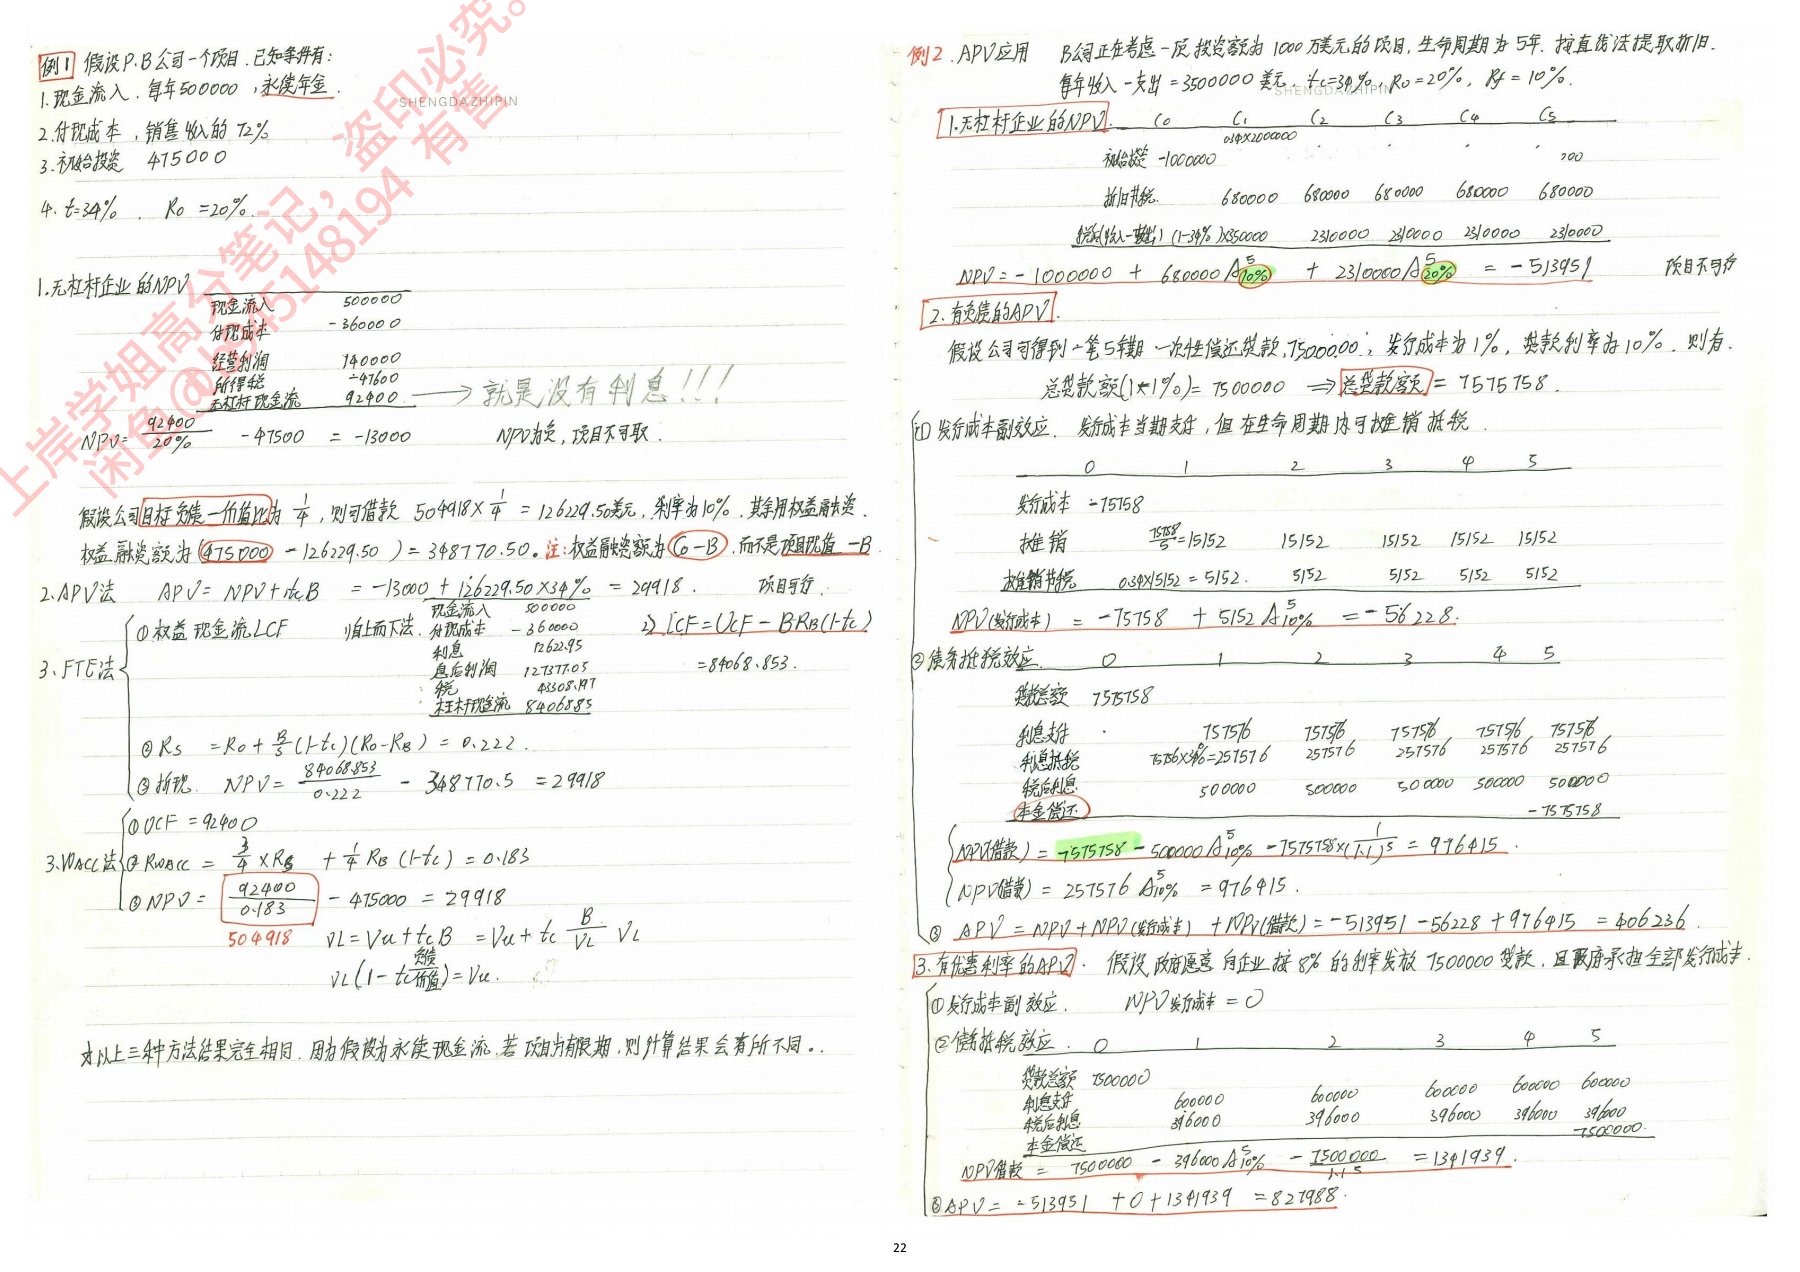 例1 假设P.B公司一个项目.已知条件有:
1.现金流入.每年500000,永续年金.
SHENGDAZHIPIN
2.付现成本,销售收入的72%
3.初始投资 475000
4. t=34%. R0 =20%.
1.无杠杆企业的NPV
现金流入 500000
付现成本 -360000
经营利润 140000
所得税 -47600
无杠杆现金流 92400 → 就是没有利息!!!
NPV= 92400/20% -47500 = -13000 NPV为负,项目不可取.
假设公司目标负债一价值比为 1/4,则可借款 504918×1/4 = 126229.50美元,利率为10%.其余用权益融资.
权益融资额为(475000 -126229.50)=348770.50。注:权益融资额为C0-B,而不是项目现值-B
2.APV法 APV= NPV+tcB = -13000 + 126229.50×34% = 29918. 项目可行.
3.FTE法
①权益现金流LCF 1)自上而下法.
现金流入 500000
付现成本 -360000
利息 12622.95
息后利润 127377.05
税 43308.197
杠杆现金流 84068.85
2) LCF=UCF-BRB(1-tc)
=84068.853.
②Rs =R0+B/S(1-tc)(R0-RB) = 0.222.
③折现. NPV= 84068.853/0.222 - 348770.5 =29918
3.WACC法
①UCF=92400
②RWACC = 3/4×RS +1/4 RB (1-tc) =0.183
③NPV= 92400/0.183 - 475000 = 29918
504918 VL=Vu+tcB =Vu+tc B/VL VL
VL(1-tc负债/价值)=Vu.
以上三种方法结果完全相同.因为假设为永续现金流.若项目为有限期,则计算结果会有所不同..
例2. APV应用 B公司正在考虑一项投资额为1000万美元的项目,生命周期为5年.按直线法提取折旧.
每年收入-支出=3500000美元, tc=34%, R0=20%, Rf=10%.
SHENGDAZHIPIN
1.无杠杆企业的NPV C0 C1 C2 C3 C4 C5
0.34×2000000
初始投资 -1000000 200
折旧节税. 680000 680000 680000 680000 680000
税后(收入-支出) (1-34%)×350000 2310000 2310000 2310000 2310000
NPV=-1000000 + 680000A⁵10% + 2310000A⁵20% = -513951 项目不可行
2.有负债的APV.
假设公司可得到一笔5年期一次性偿还贷款,7500000;发行成本为1%,贷款利率为10%.则有.
总贷款额(1-1%)= 7500000 ⇒总贷款额= 7575758.
①发行成本副效应. 发行成本当期支付,但在生命周期内可摊销抵税.
0 1 2 3 4 5
发行成本 -75758
摊销 75758/5=15152 15152 15152 15152 15152
摊销节税 0.34×15152=5152. 5152 5152 5152 5152
NPV(发行成本) = -75758 + 5152A⁵10% =-56228.
②债务抵税效应. 0 1 2 3 4 5
贷款总额 7575758
利息支付 757576 757576 757576 757576 757576
利息抵税 757576×34%=257576 257576 257576 257576 257576
税后利息 500000 500000 500000 500000 500000
本金偿还 -7575758
NPV(借款) = 7575758 - 500000A⁵10% -7575758×(1/1.1)⁵ = 976415.
NPV(借款) = 257576 A⁵10% =976415.
③ APV=NPV+NPV(发行成本) +NPV(借款)=-513951-56228+976415 =406236.
3.有优惠利率的APV. 假设政府愿意向企业按8%的利率发放7500000贷款,且政府承担全部发行成本.
①发行成本副效应. NPV发行成本=0
②债务抵税效应. 0 1 2 3 4 5
贷款总额 7500000
利息支付 600000 600000 600000 600000 600000
税后利息 396000 396000 396000 396000 396000
本金偿还 -7500000.
NPV借款 = 7500000 - 396000A⁵10% - 7500000/1.1⁵ =1341939.
③APV= -513951 +0+1341939 =827988.
上岸学姐高分笔记,盗印必究。
闲鱼@b945148194有售
22